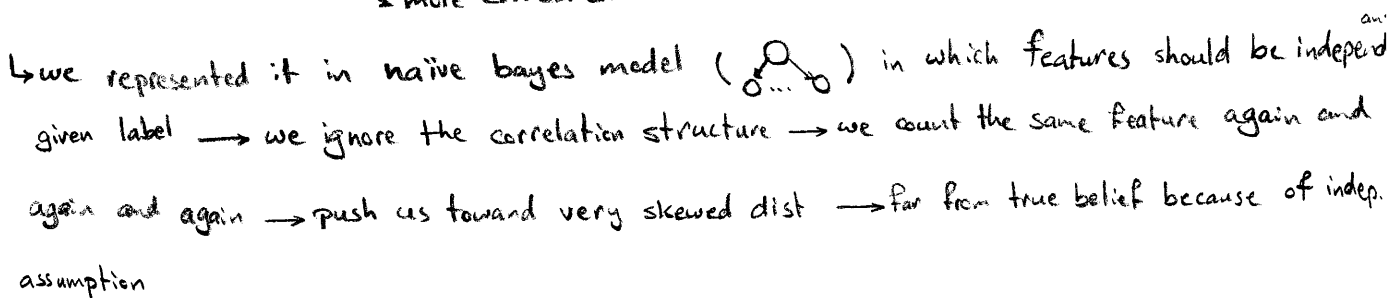 ↳ we represented it in naïve bayes model ( ... ) in which features should be independ
given label → we ignore the correlation structure → we count the same feature again and
again and again → push us toward very skewed dist → far from true belief because of indep.
assumption